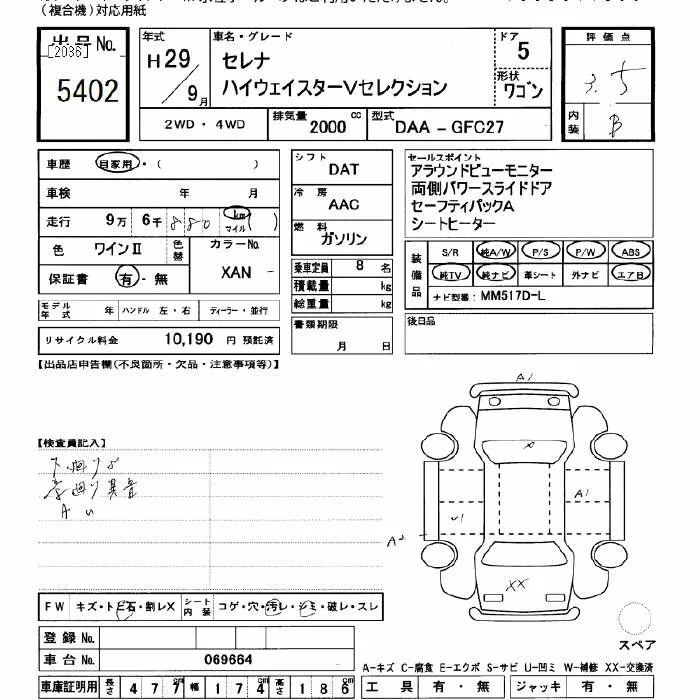 （複合機）対応用紙
出品No. 年式 車名・グレード ドア 評価点
[2036] H29 セレナ 5 3.5
5402 9月 ハイウェイスターVセレクション 形状 ワゴン
内装 B
2WD・4WD 排気量 2000 cc 型式 DAA - GFC27
車歴 自家用・( )
車検 年 月
走行 9万 6千 880 km マイル ( )
色 ワインⅡ 色替 カラーNo. XAN
保証書 有・無
モデル年式 年 ハンドル 左・右 ディーラー・並行
リサイクル料金 10,190 円 預託済
シフト DAT
冷房 AAC
燃料 ガソリン
乗車定員 8 名
積載量 kg
総重量 kg
書類期限
月 日
セールスポイント
アラウンドビューモニター
両側パワースライドドア
セーフティパックA
シートヒーター
装備品 S/R 純A/W P/S P/W ABS
純TV 純ナビ 革シート 外ナビ エアB
ナビ型番: MM517D-L
後日品
【出品店申告欄(不良箇所・欠品・注意事項等)】
【検査員記入】
下廻りS
足廻り異音
A U
A1
X
A1
U1
A2
XX
スペア
FW キズ・トビ石・割レX シート内装 コゲ・穴・汚レ・シミ・破レ・スレ
登録No.
車台No. 069664
A-キズ C-腐食 E-エクボ S-サビ U-凹ミ W-補修 XX-交換済
車庫証明用 長さ 477 cm 幅 174 cm 高さ 186 cm 工具 有・無 ジャッキ 有・無